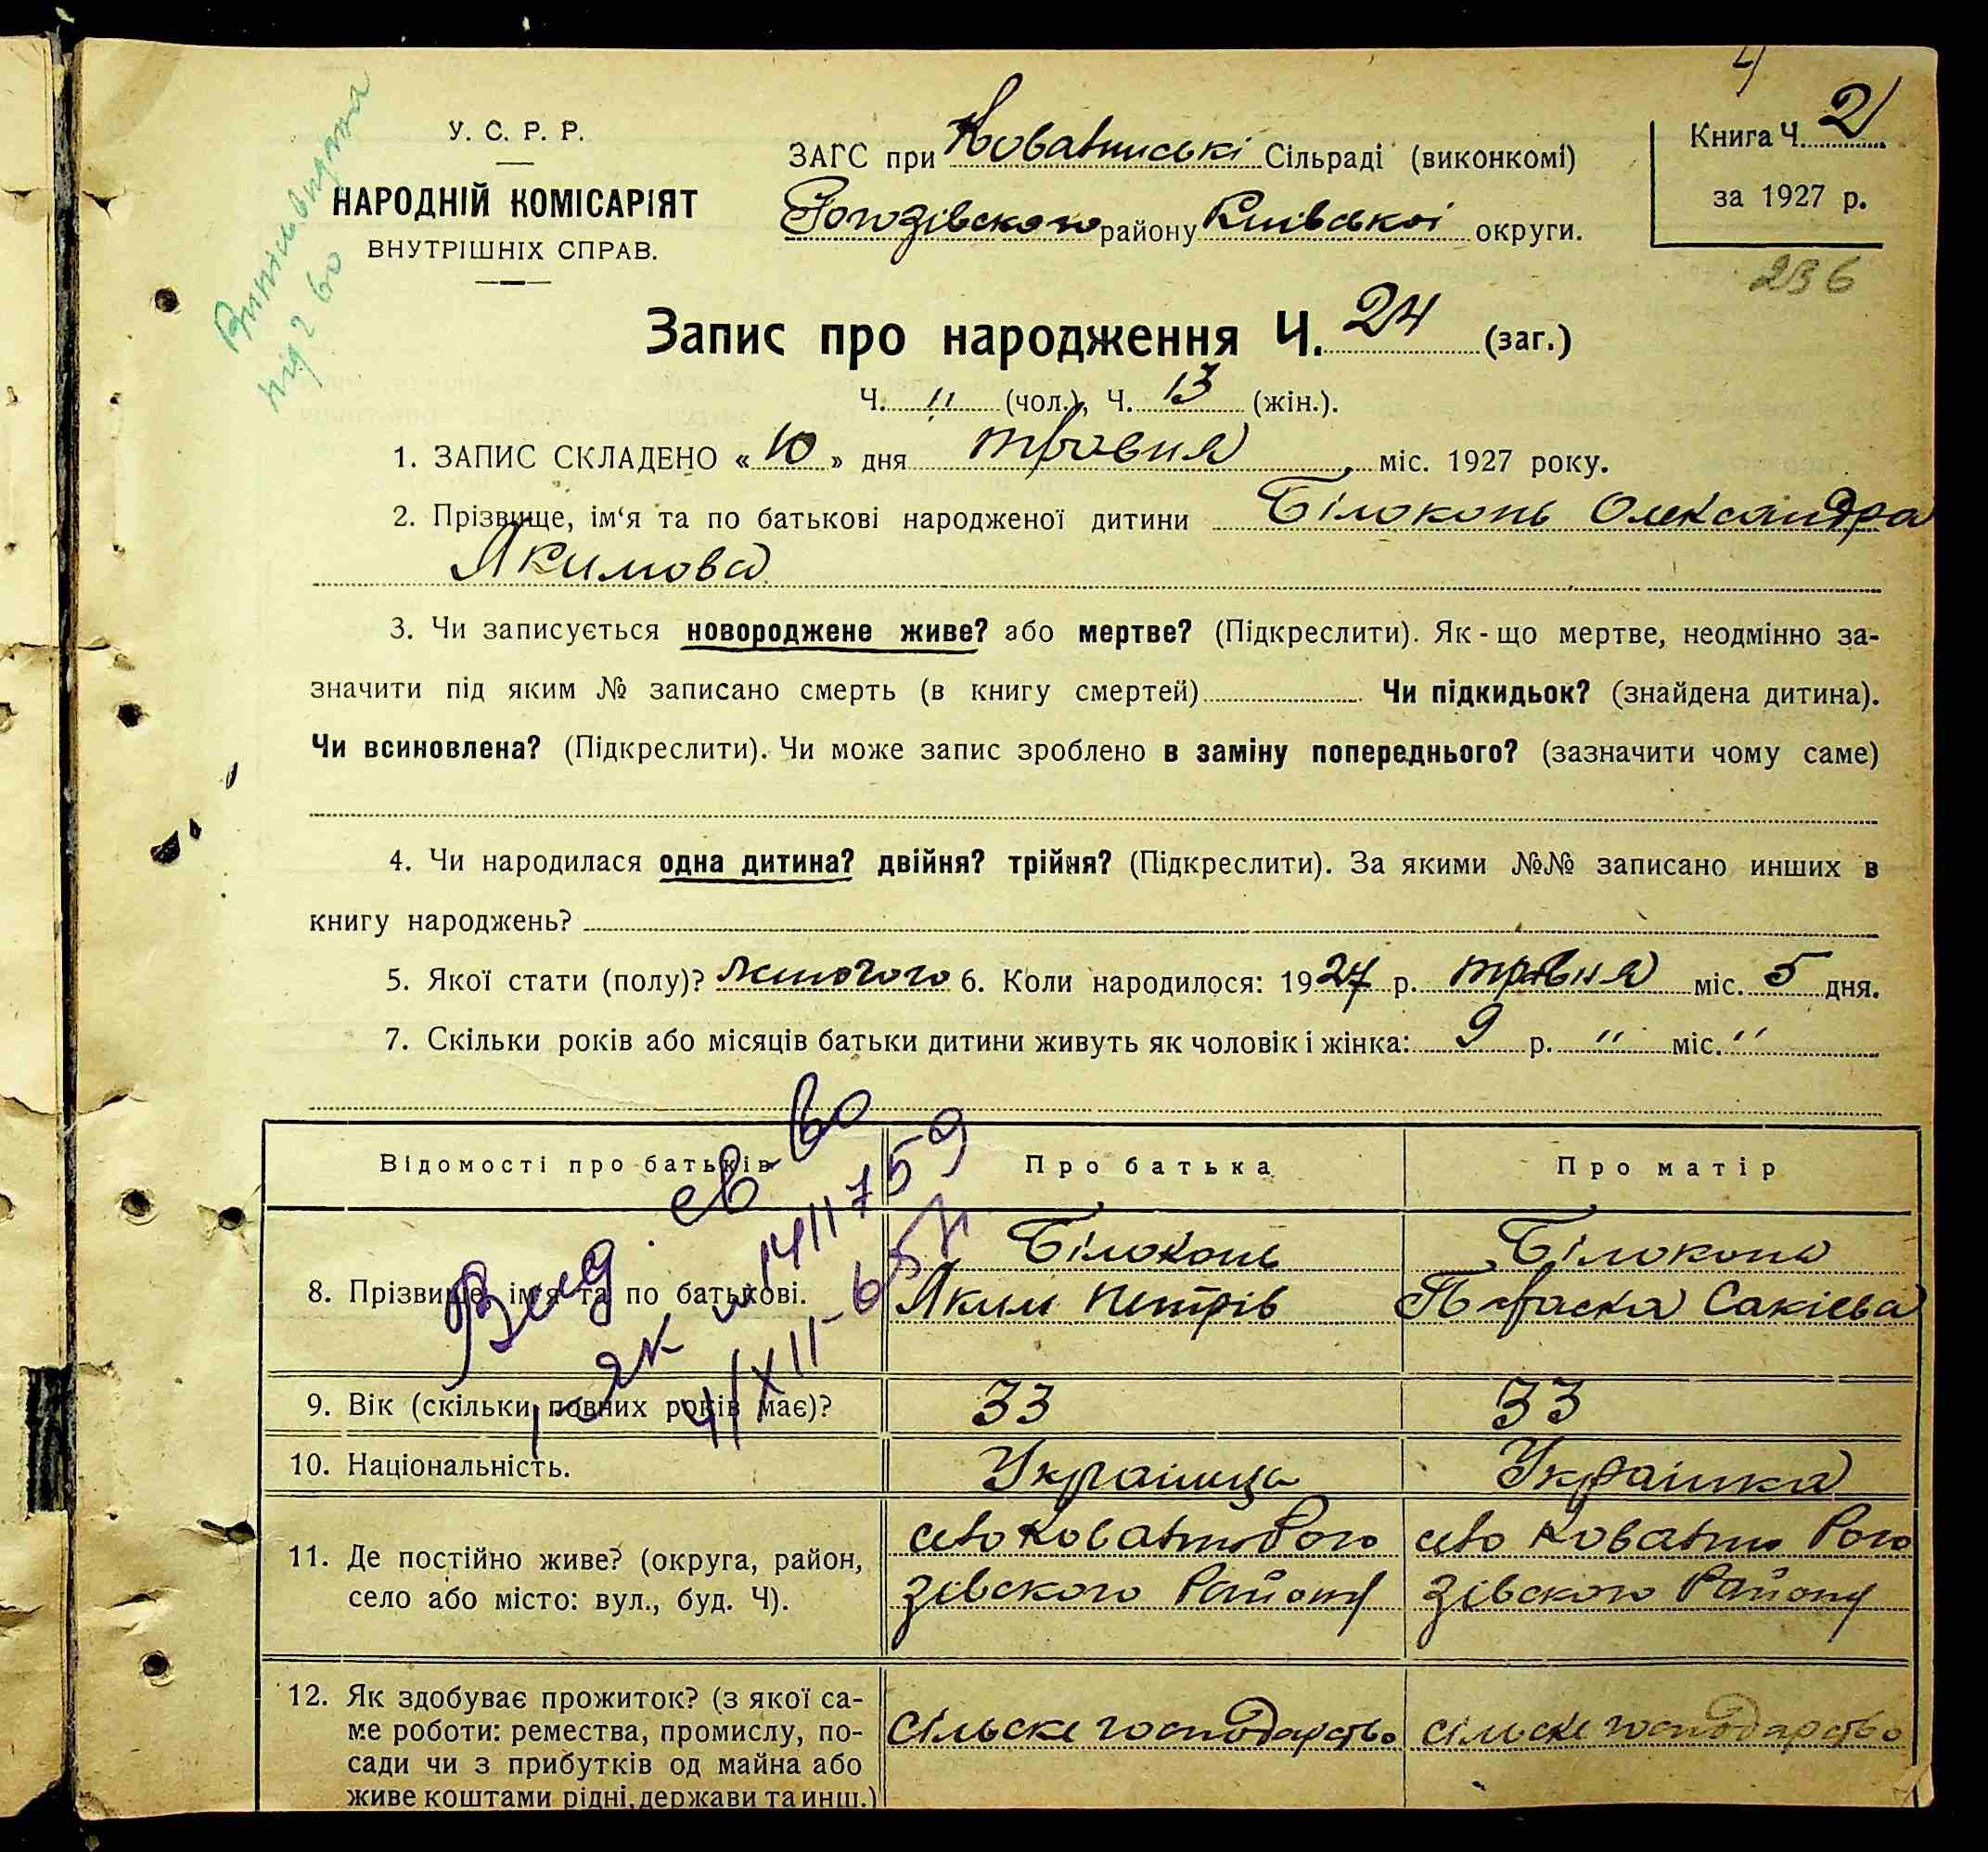 4
У. С. Р. Р.
НАРОДНІЙ КОМІСАРІЯТ
ВНУТРІШНІХ СПРАВ.
ЗАГС при Ковалинські Сільраді (виконкомі)
Рогозівского району Київської округи.
Книга Ч. 2
за 1927 р.
236
Запис про народження Ч. 24 (заг.)
Ч. " (чол.), Ч. 13 (жін.).
1. ЗАПИС СКЛАДЕНО «10» дня травня міс. 1927 року.
2. Прізвище, ім‘я та по батькові народженої дитини Білоконь Олександра
Якимова
3. Чи записується новороджене живе? або мертве? (Підкреслити). Як-що мертве, неодмінно за-
значити під яким № записано смерть (в книгу смертей) Чи підкидьок? (знайдена дитина).
Чи всиновлена? (Підкреслити). Чи може запис зроблено в заміну попереднього? (зазначити чому саме)
4. Чи народилася одна дитина? двійня? трійня? (Підкреслити). За якими №№ записано инших в
книгу народжень?
5. Якої стати (полу)? жіночого 6. Коли народилося: 1927 р. травня міс. 5 дня.
7. Скільки років або місяців батьки дитини живуть як чоловік і жінка: 9 р. " міс. "
Відомості про батьків Про батька Про матір
8. Прізвище, ім'я та по батькові.
Білоконь
Яким Петрів
Білоконь
Параска Сакієва
9. Вік (скільки повних років має)? 33 33
10. Національність. Українець Українка
11. Де постійно живе? (округа, район,
село або місто: вул., буд. Ч).
село Ковалин Рого
зівского Району
село Ковалин Рого
зівского Району
12. Як здобуває прожиток? (з якої са-
ме роботи: ремества, промислу, по-
сади чи з прибутків од майна або
живе коштами рідні, держави та инш.)
сільске господарство
сільске господарство